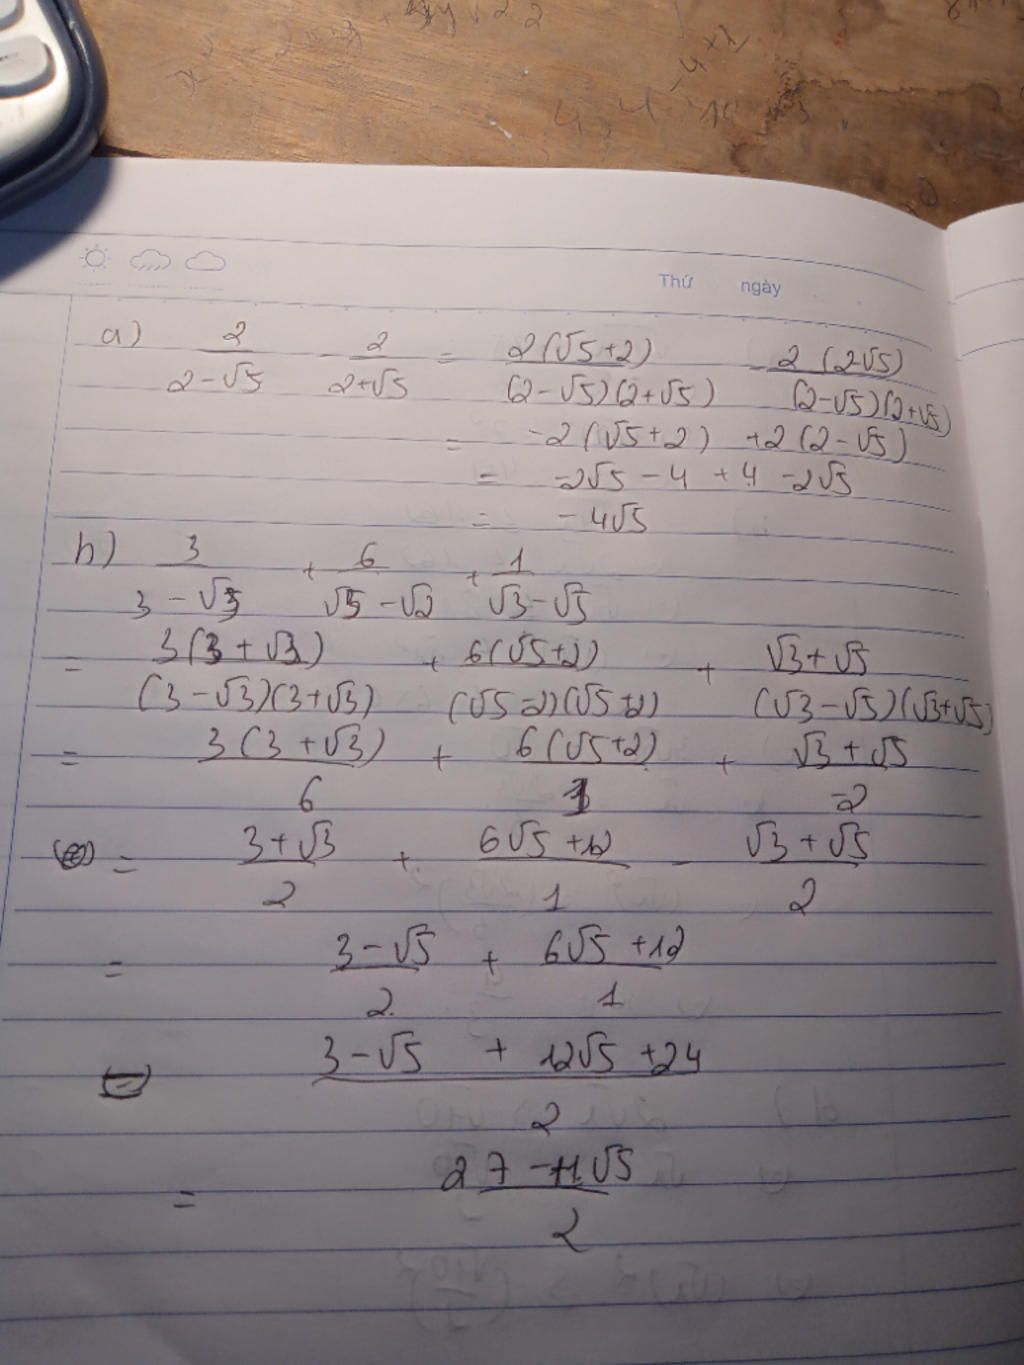 Thứ ngày
a) 2/(2-√5) - 2/(2+√5) = 2(√5+2)/((2-√5)(2+√5)) - 2(2√5)/((2-√5)(2+√5))
= -2(√5+2) +2(2-√5)
= -2√5 - 4 + 4 - 2√5
= - 4√5
b) 3/(3-√3) + 6/(√5-√2) + 1/(√3-√5)
= 3(3+√3)/((3-√3)(3+√3)) + 6(√5+2)/((√5-2)(√5+2)) + (√3+√5)/((√3-√5)(√3+√5))
= 3(3+√3)/6 + 6(√5+2)/1 + (√3+√5)/-2
= (3+√3)/2 + (6√5+12)/1 - (√3+√5)/2
= (3-√5)/2 + (6√5+12)/1
= (3-√5 + 12√5+24)/2
= (27-11√5)/2